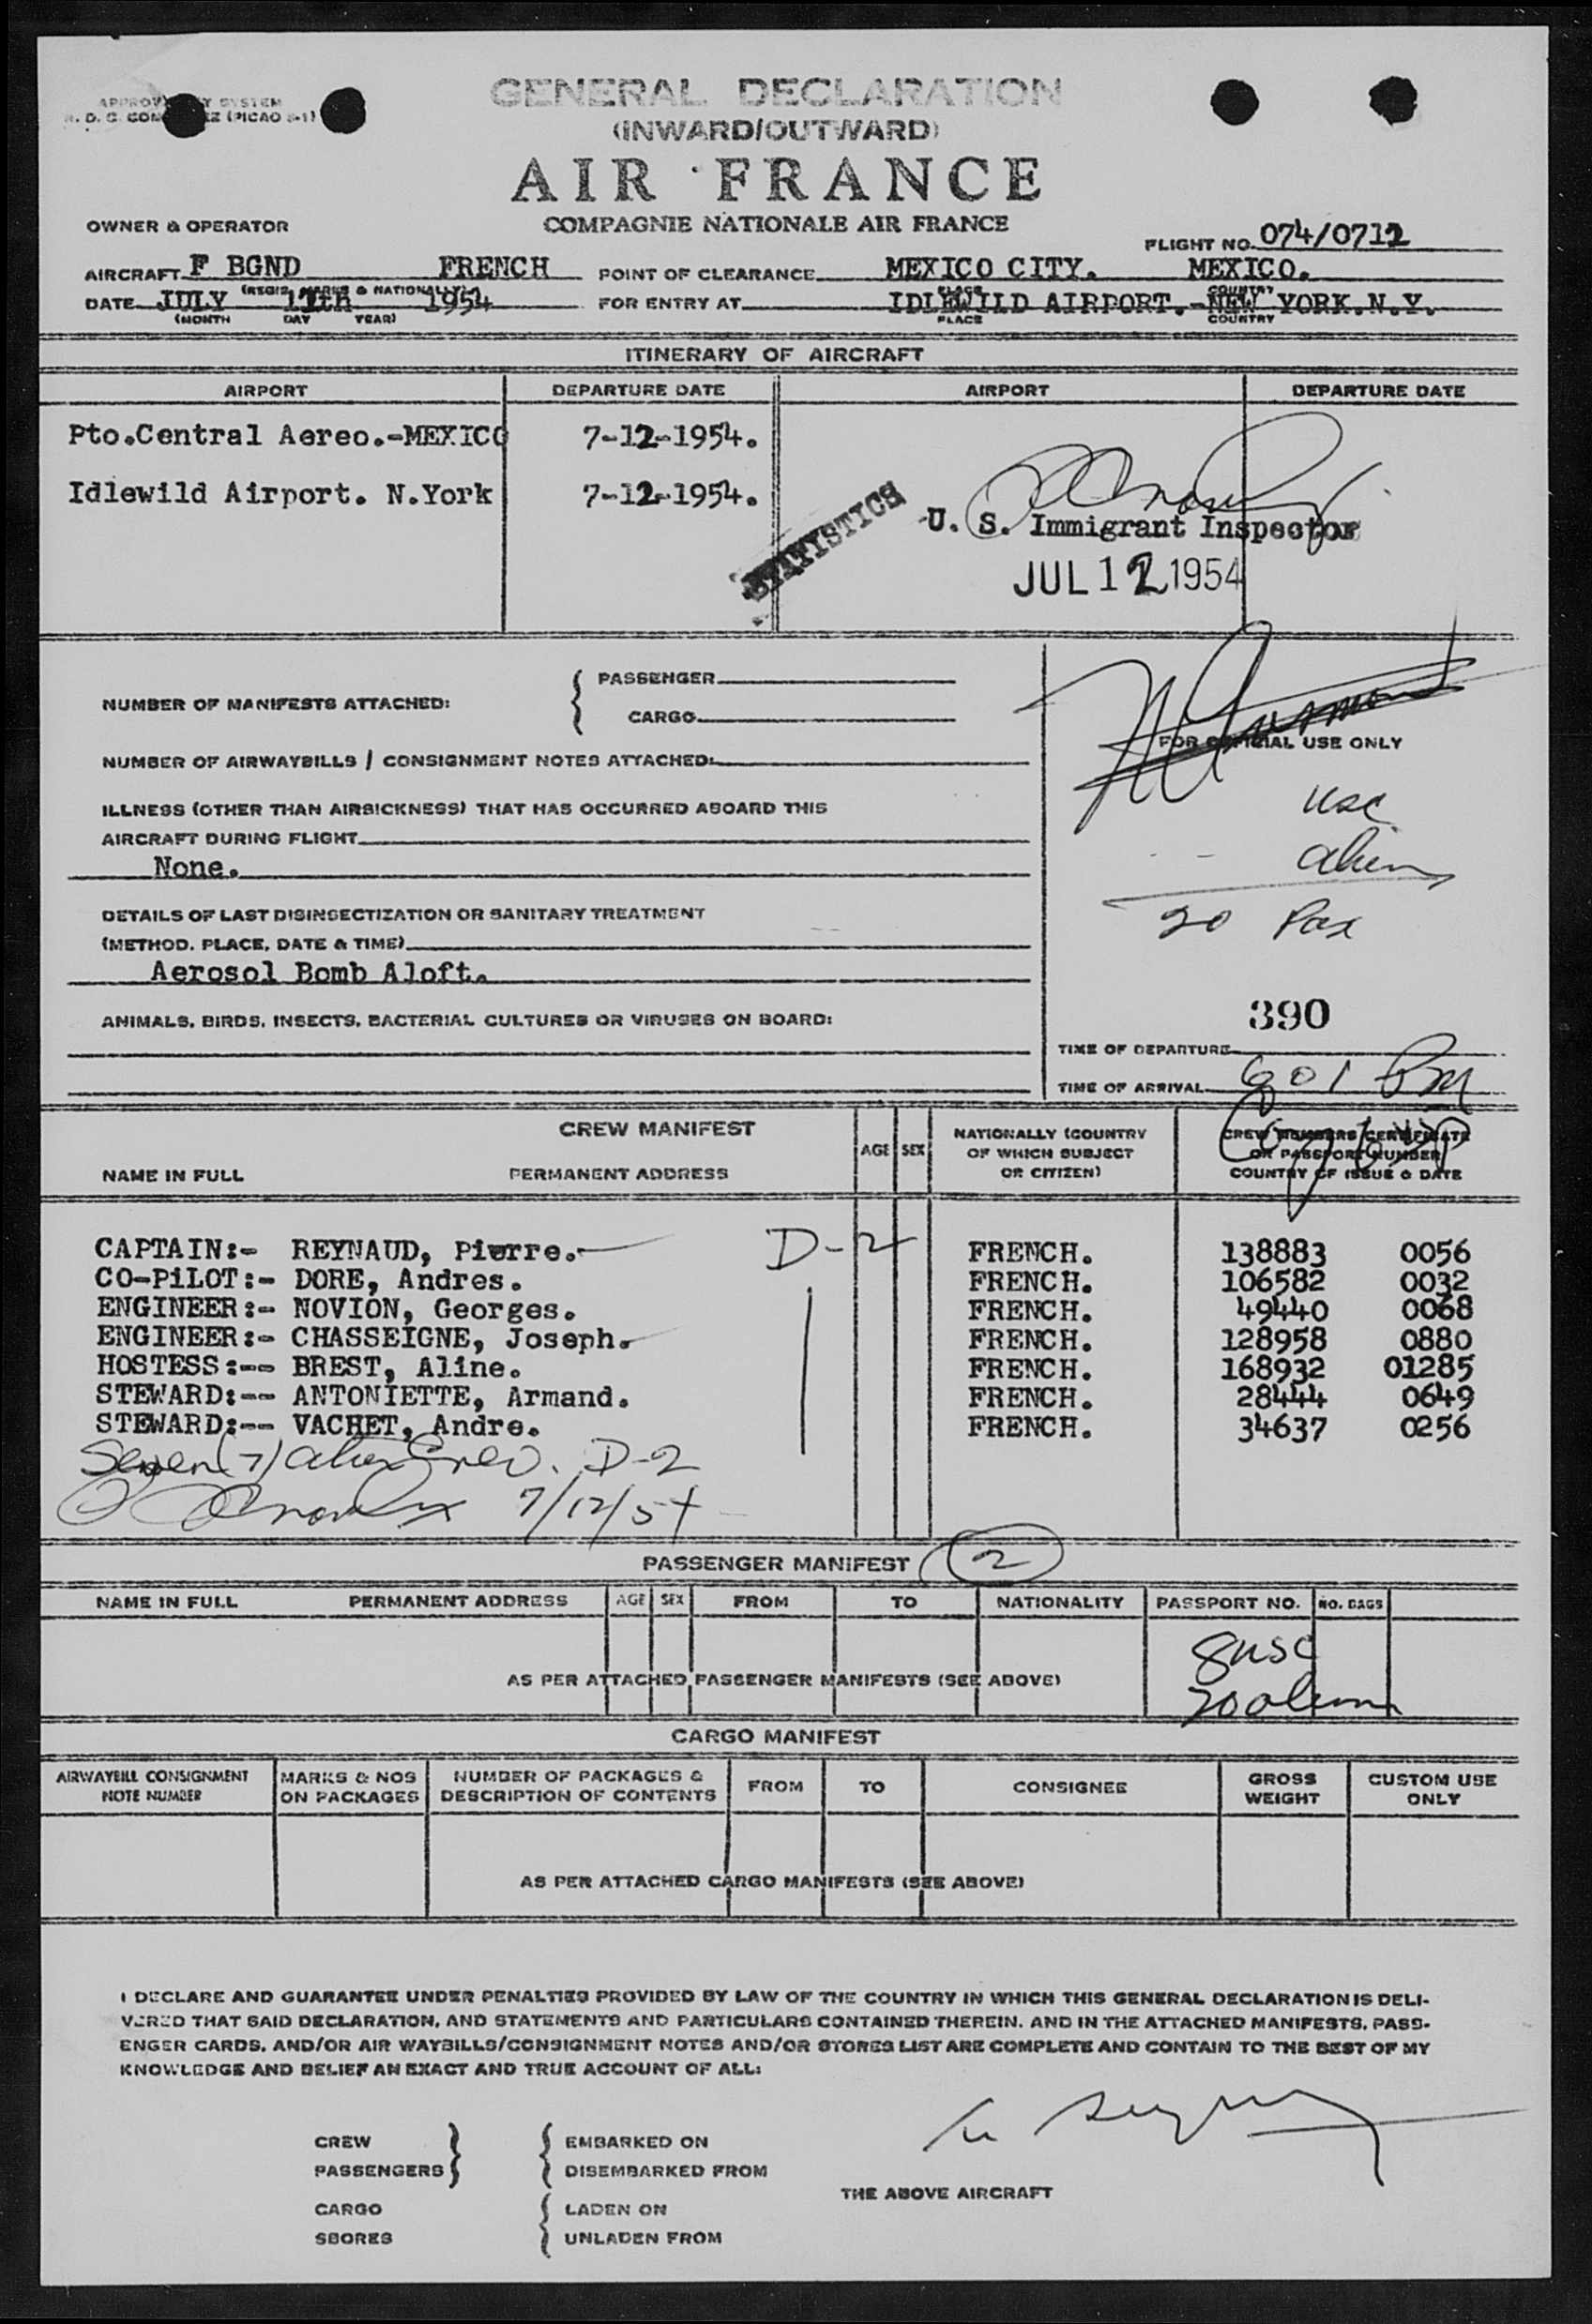 GENERAL DECLARATION
(INWARD/OUTWARD)
AIR FRANCE
COMPAGNIE NATIONALE AIR FRANCE
OWNER & OPERATOR
FLIGHT NO. 074/0712
AIRCRAFT F BGND FRENCH POINT OF CLEARANCE MEXICO CITY. MEXICO.
(REGIS. MARKS & NATIONALLY) PLACE COUNTRY
DATE JULY 12th 1954 FOR ENTRY AT IDLEWILD AIRPORT.-NEW YORK.N.Y.
(MONTH DAY YEAR) PLACE COUNTRY
ITINERARY OF AIRCRAFT
AIRPORT DEPARTURE DATE AIRPORT DEPARTURE DATE
Pto.Central Aereo.-MEXICO 7-12-1954.
Idlewild Airport. N.York 7-12-1954.
STATISTICS
U. S. Immigrant Inspector
JUL 12 1954
NUMBER OF MANIFESTS ATTACHED: PASSENGER
CARGO
FOR OFFICIAL USE ONLY
NUMBER OF AIRWAYBILLS / CONSIGNMENT NOTES ATTACHED:
ILLNESS (OTHER THAN AIRSICKNESS) THAT HAS OCCURRED ABOARD THIS
AIRCRAFT DURING FLIGHT
None.
usc
alien
DETAILS OF LAST DISINSECTIZATION OR SANITARY TREATMENT
(METHOD, PLACE, DATE & TIME)
Aerosol Bomb Aloft.
Pax
ANIMALS, BIRDS, INSECTS, BACTERIAL CULTURES OR VIRUSES ON BOARD:
390
TIME OF DEPARTURE
TIME OF ARRIVAL 601 PM
CREW MANIFEST
NAME IN FULL PERMANENT ADDRESS AGE SEX NATIONALLY (COUNTRY OF WHICH SUBJECT OR CITIZEN) CREW MEMBERS CERTIFICATE OR PASSPORT NUMBER COUNTRY OF ISSUE & DATE
CAPTAIN:- REYNAUD, Pierre. D-2 FRENCH. 138883 0056
CO-PiLOT:- DORE, Andres. FRENCH. 106582 0032
ENGINEER:- NOVION, Georges. FRENCH. 49440 0068
ENGINEER:- CHASSEIGNE, Joseph. FRENCH. 128958 0880
HOSTESS:-- BREST, Aline. FRENCH. 168932 01285
STEWARD:-- ANTONIETTE, Armand. FRENCH. 28444 0649
STEWARD:-- VACHET, Andre. FRENCH. 34637 0256
Seven (7) alien Crew. D-2
7/12/54
PASSENGER MANIFEST 2
NAME IN FULL PERMANENT ADDRESS AGE SEX FROM TO NATIONALITY PASSPORT NO. NO. BAGS
8 usc
AS PER ATTACHED PASSENGER MANIFESTS (SEE ABOVE)
alien
CARGO MANIFEST
AIRWAYBILL CONSIGNMENT NOTE NUMBER MARKS & NOS ON PACKAGES NUMBER OF PACKAGES & DESCRIPTION OF CONTENTS FROM TO CONSIGNEE GROSS WEIGHT CUSTOM USE ONLY
AS PER ATTACHED CARGO MANIFESTS (SEE ABOVE)
I DECLARE AND GUARANTEE UNDER PENALTIES PROVIDED BY LAW OF THE COUNTRY IN WHICH THIS GENERAL DECLARATION IS DELI-
VERED THAT SAID DECLARATION, AND STATEMENTS AND PARTICULARS CONTAINED THEREIN. AND IN THE ATTACHED MANIFESTS, PASS-
ENGER CARDS, AND/OR AIR WAYBILLS/CONSIGNMENT NOTES AND/OR STORES LIST ARE COMPLETE AND CONTAIN TO THE BEST OF MY
KNOWLEDGE AND BELIEF AN EXACT AND TRUE ACCOUNT OF ALL:
CREW EMBARKED ON
PASSENGERS DISEMBARKED FROM
THE ABOVE AIRCRAFT
CARGO LADEN ON
SBORES UNLADEN FROM